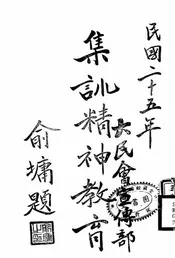 民國二十五年
大民會宣傳部
集訓精神教育
俞墉題